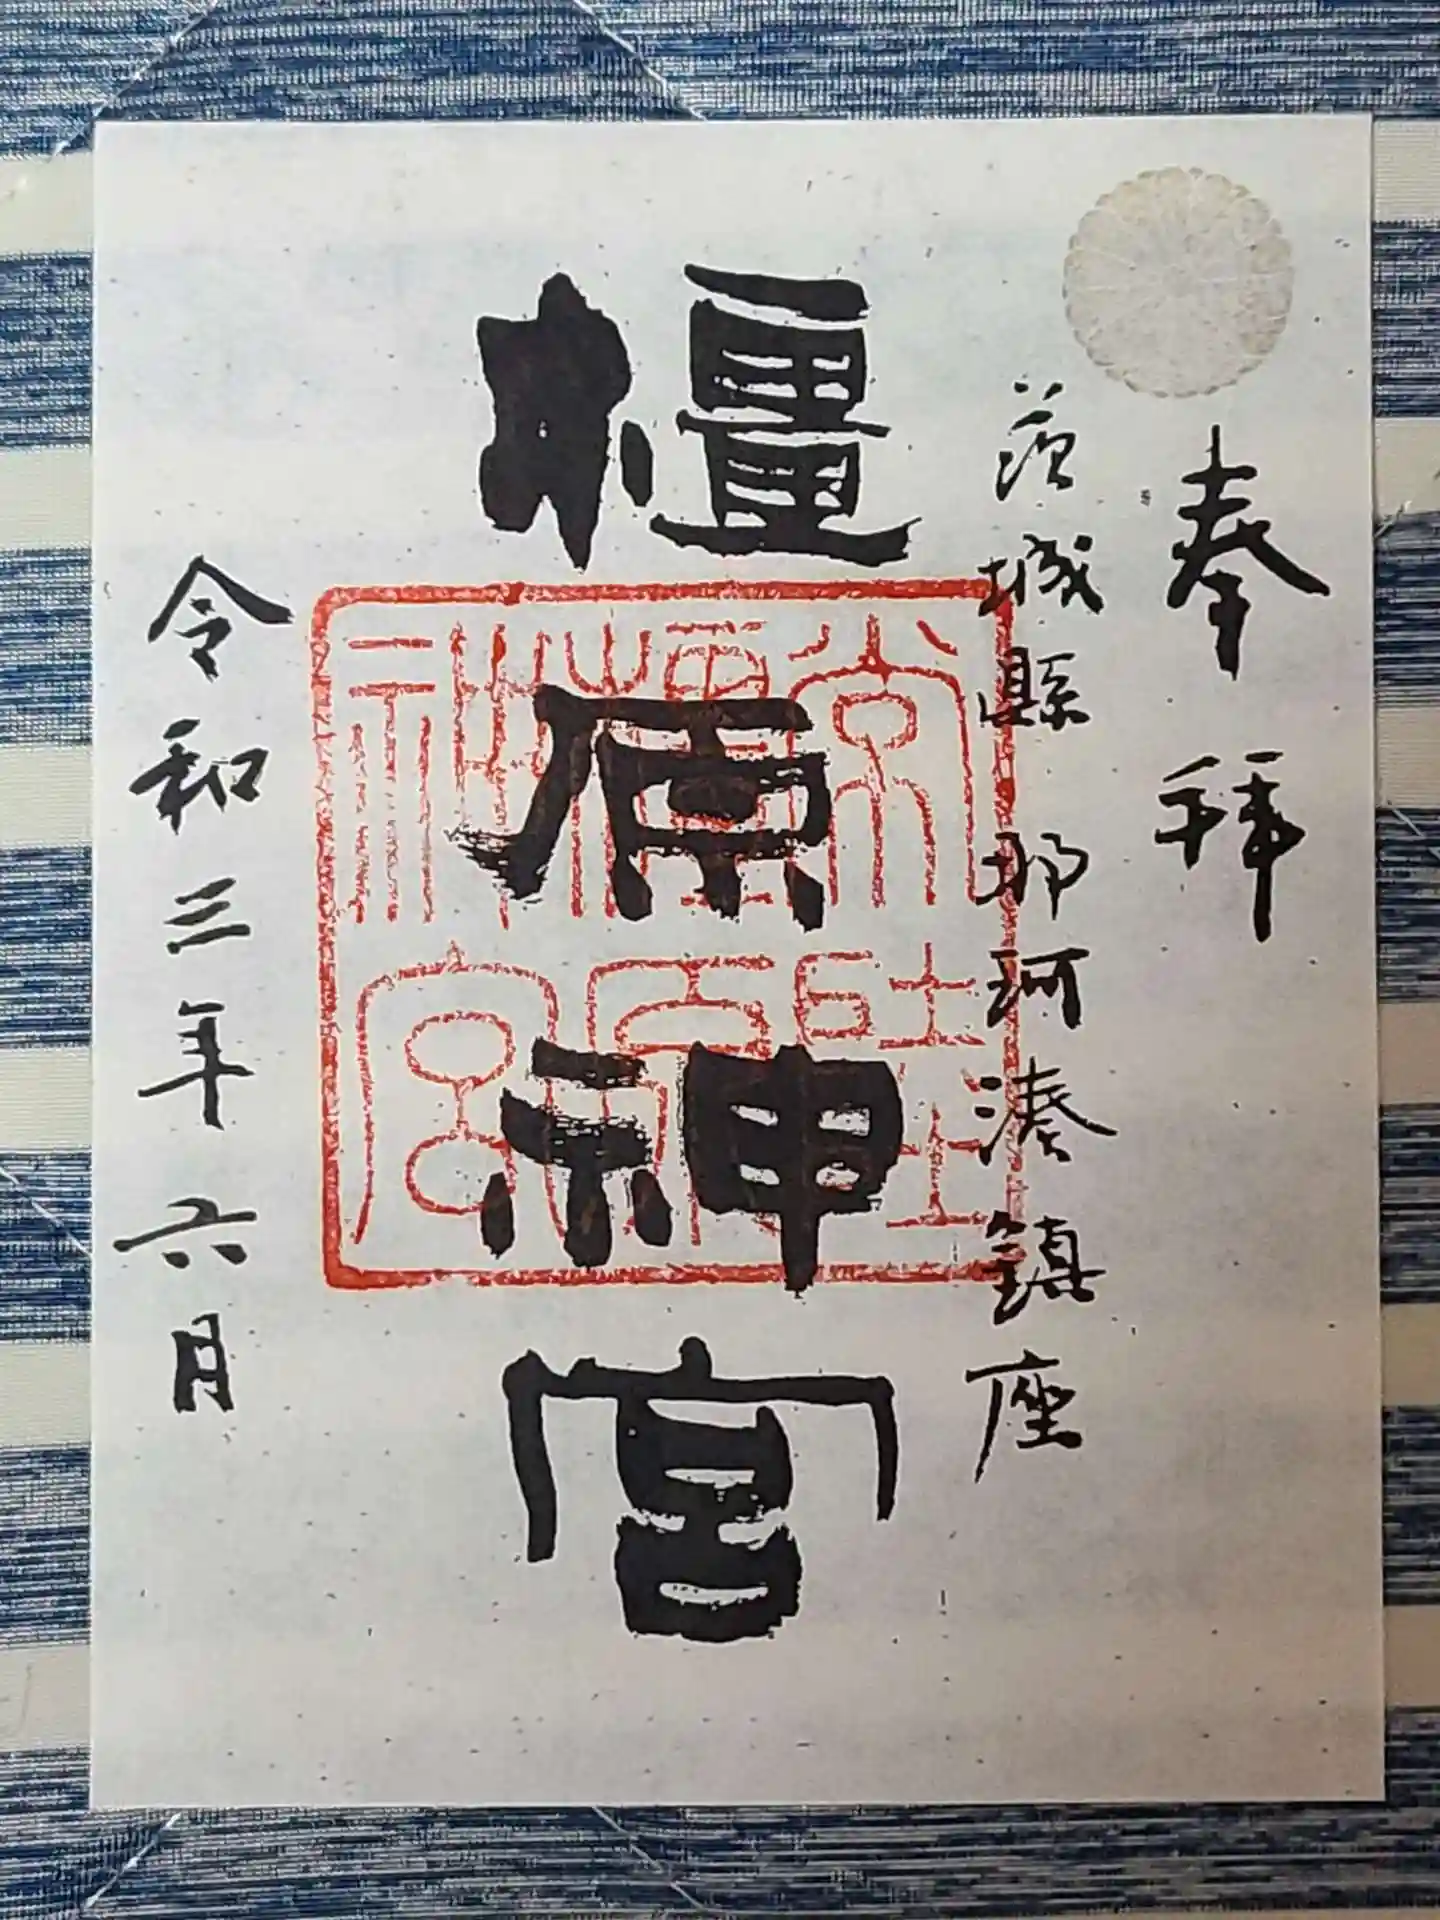 奉拝
茨城縣那珂湊鎮座
橿原神宮
令和三年六月